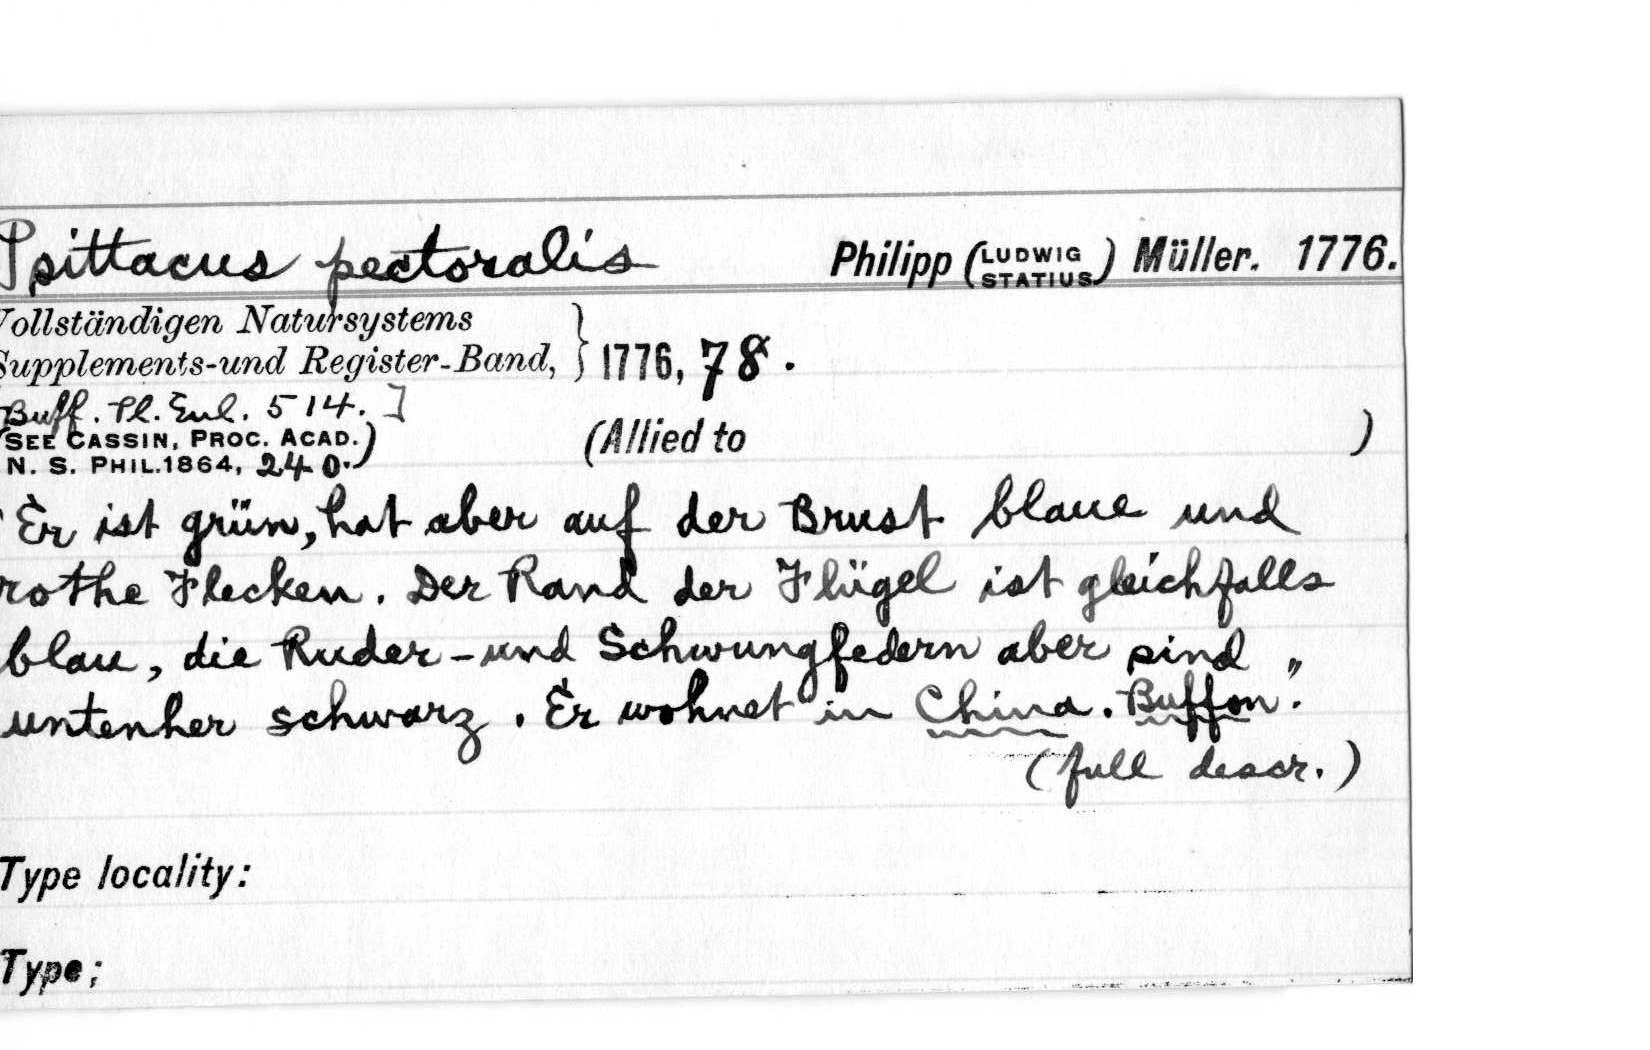 Psittacus pectoralis Philipp (LUDWIG STATIUS) Müller. 1776.
Vollständigen Natursystems
Supplements-und Register-Band, } 1776, 78.
Buff. Pl. Enl. 514.]
(SEE CASSIN, PROC. ACAD.
N. S. PHIL. 1864, 240.) (Allied to )
"Er ist grün, hat aber auf der Brust blaue und
rothe Flecken. Der Rand der Flügel ist gleichfalls
blau, die Ruder-und Schwungfedern aber sind
untenher schwarz. Er wohnet in China. Buffon."
(full descr.)
Type locality:
Type;